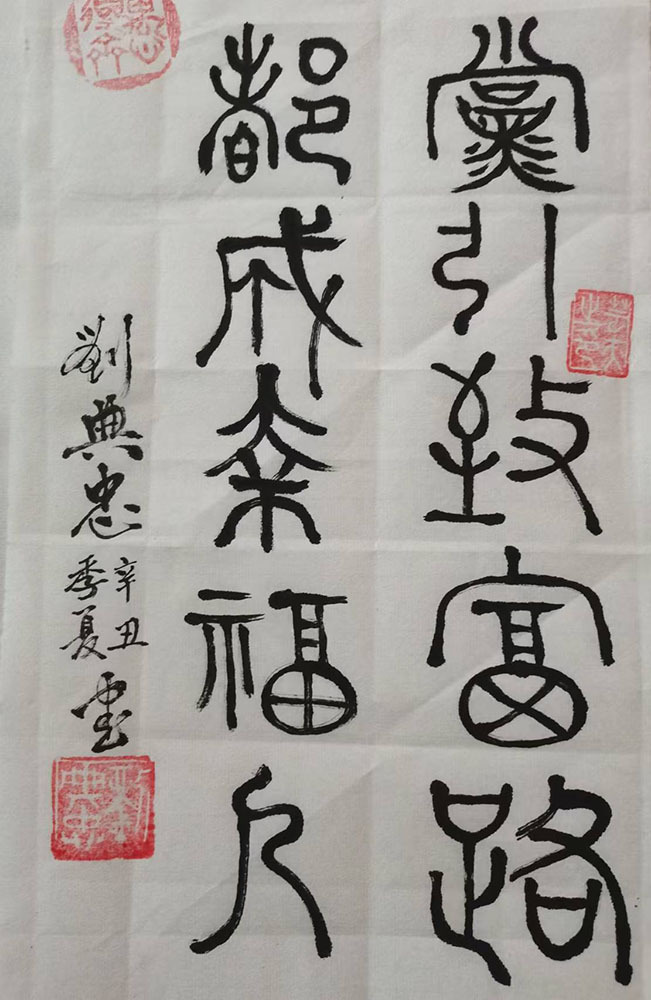 黨引致富路
都成幸福人
劉典忠
辛丑
季夏
劉典忠